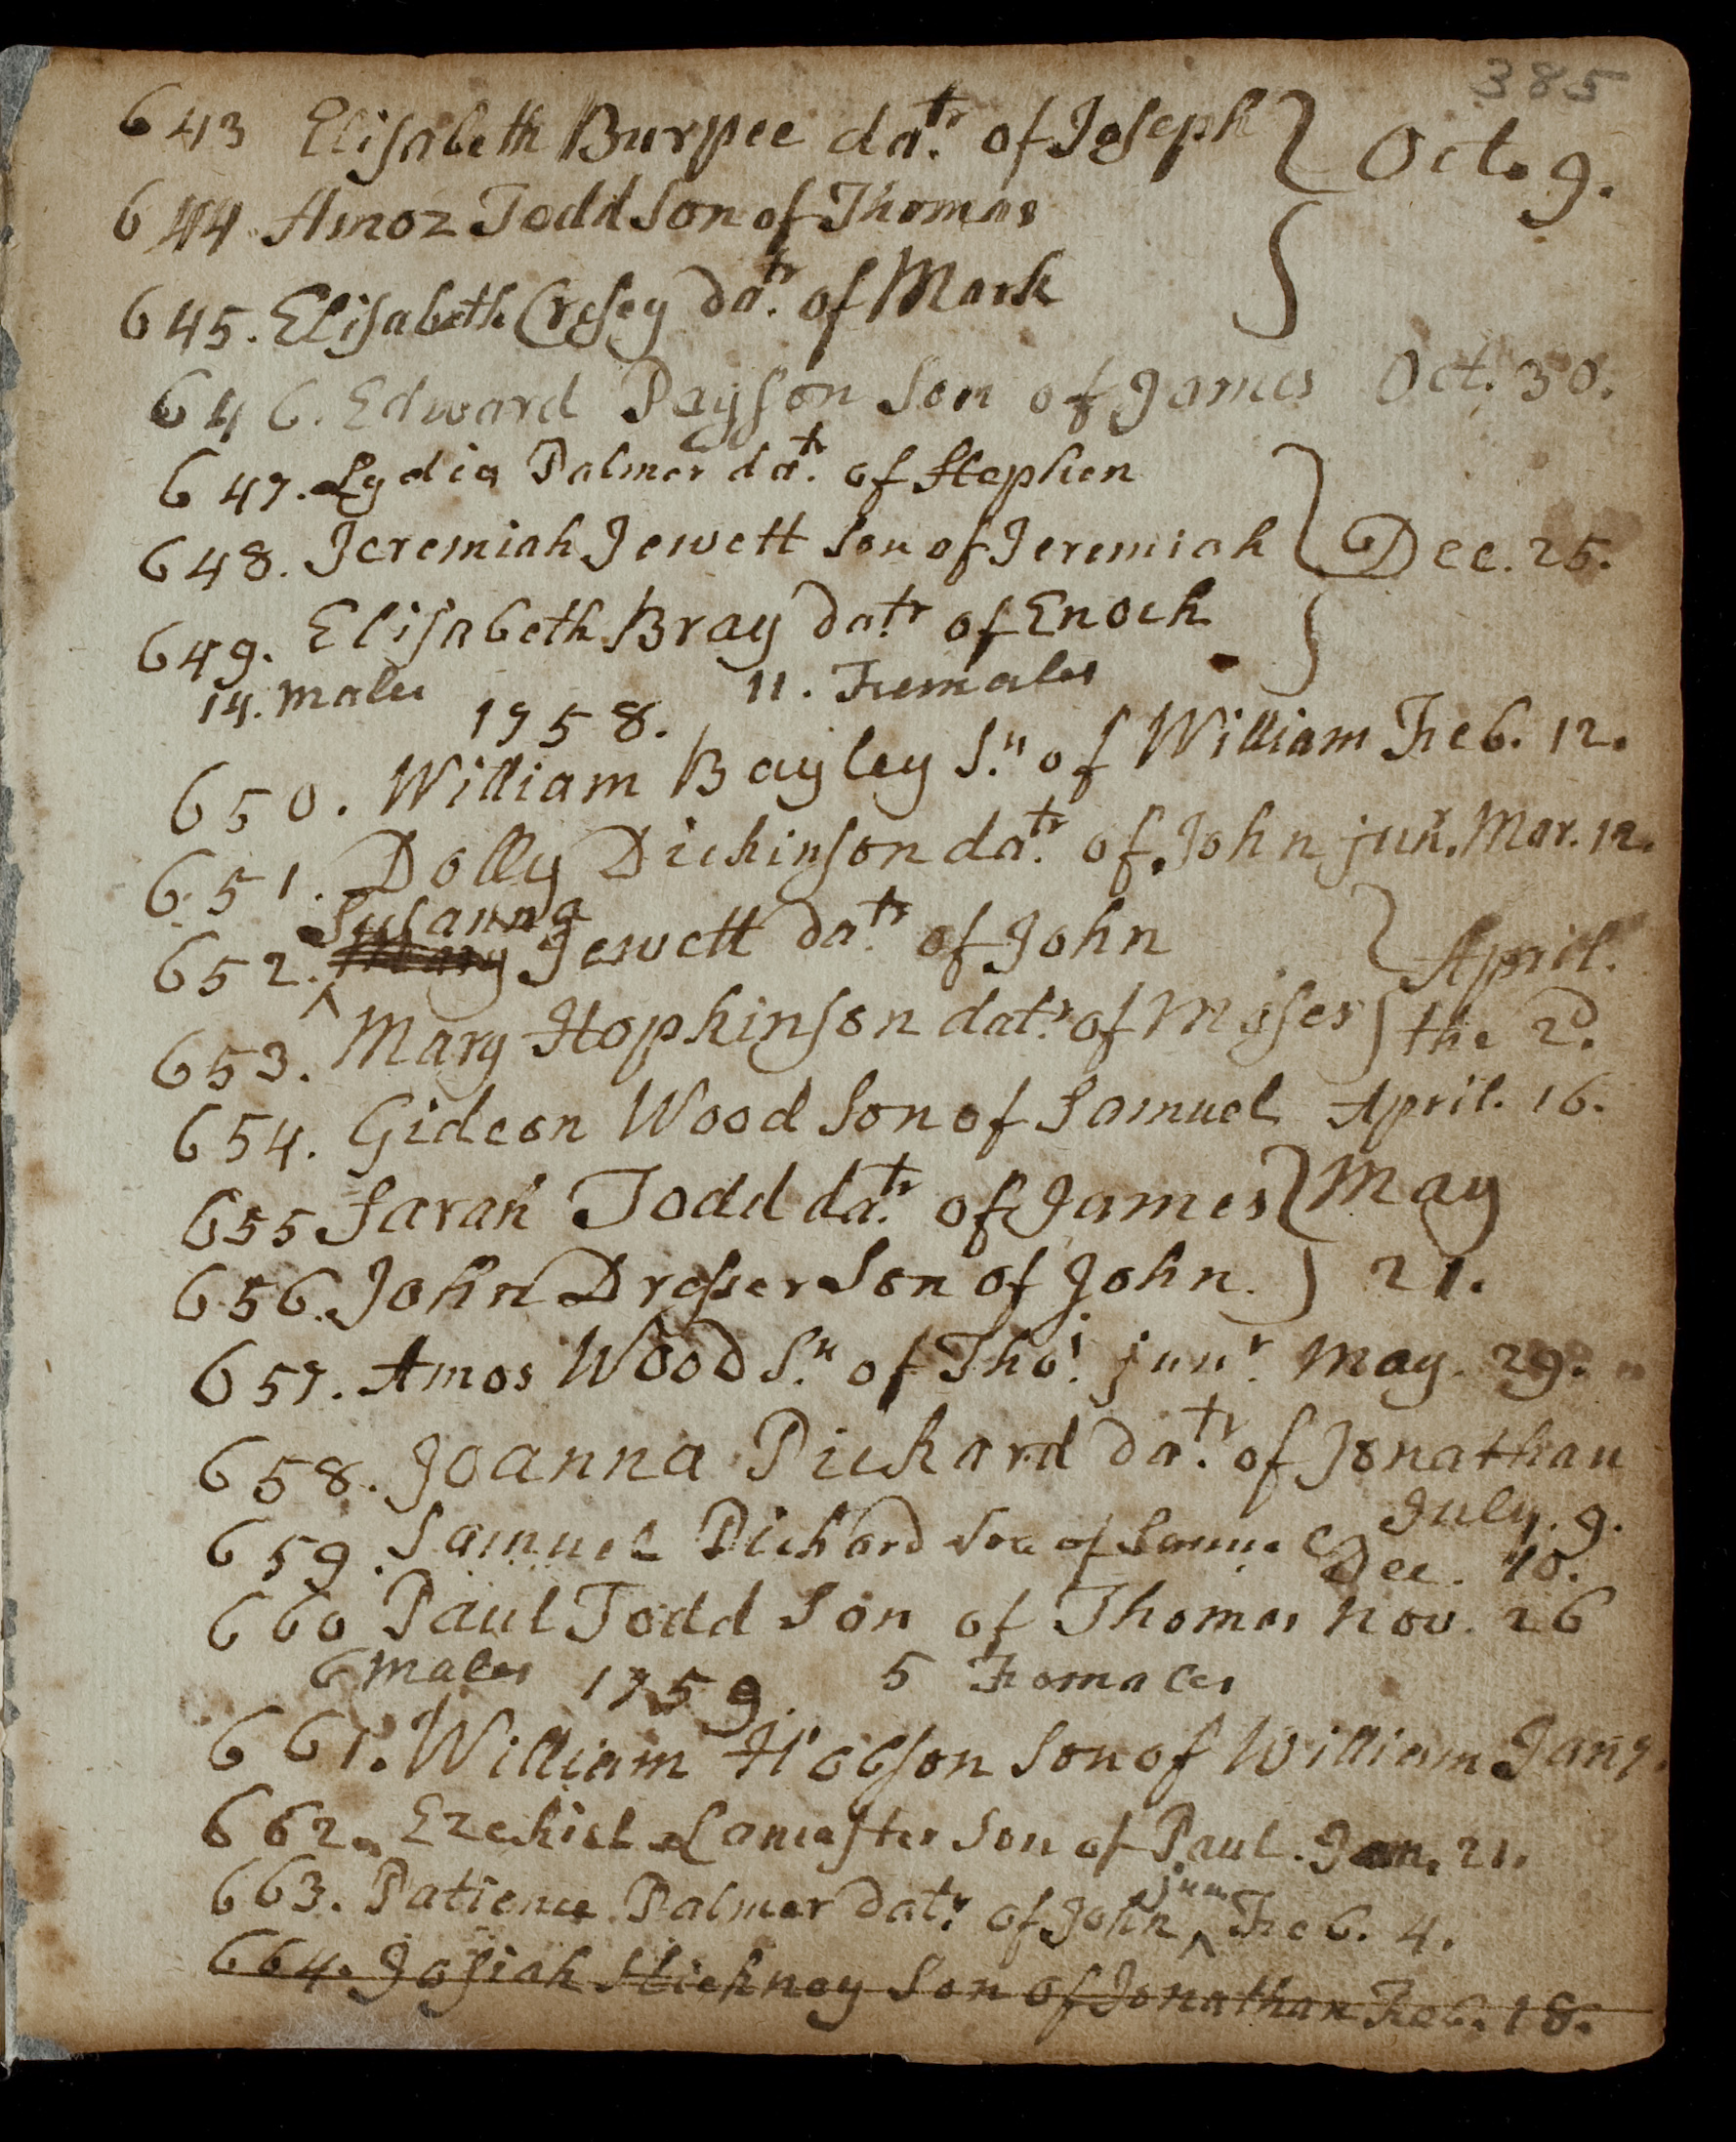 385
643 Elisabeth Burpee datr. of Joseph } Oct. 9.
644 Amoz Todd Son of Thomas
645. Elisabeth Cresey datr. of Mark
646. Edward Payson Son of James Oct. 30.
647. Lydia Palmer datr. of Stephen
648. Jeremiah Jewett Son of Jeremiah } Dec. 25.
649. Elisabeth Bray datr. of Enoch
14. Males 11. Females
1758.
650. William Bayley Sn. of William Feb. 12.
651. Dolly Dickinson datr. of John junr. Mar. 12.
Susanna
652. ^ Mary Jewett datr. of John } April.
653. Mary Hopkinson datr. of Moses } the 2d.
654. Gideon Wood Son of Samuel April. 16.
655 Sarah Todd datr. of James } May
656. John Dresser Son of John. } 21.
657. Amos Wood Sn. of Thos. junr. May. 29.
658. Joanna Pickard datr. of Jonathan
July. 9.
659. Samuel Pickard Son of Samuel Dec. 10.
660 Paul Todd Son of Thomas Nov. 26
6 Males 5 Females
1759.
661. William Hobson Son of William Jan 7.
662. Ezekiel Lancaster Son of Paul. Jan. 21.
663. Patience Palmer datr. of John ^ jun Feb. 4.
664. Josiah Stickney Son of Jonathan Feb. 18.